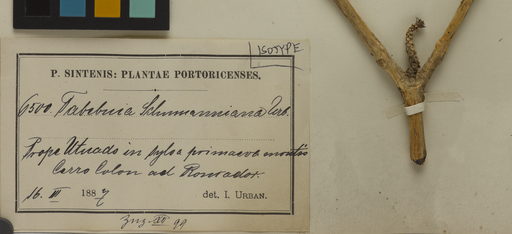 ISOTYPE
P. SINTENIS: PLANTAE PORTORICENSES.
6500. Tabebuia Schumanniana Urb.
Prope Utuado in sylva primaeva montis
Cerro Colon ad Roncador.
16. III 1887 det. I. URBAN.
99